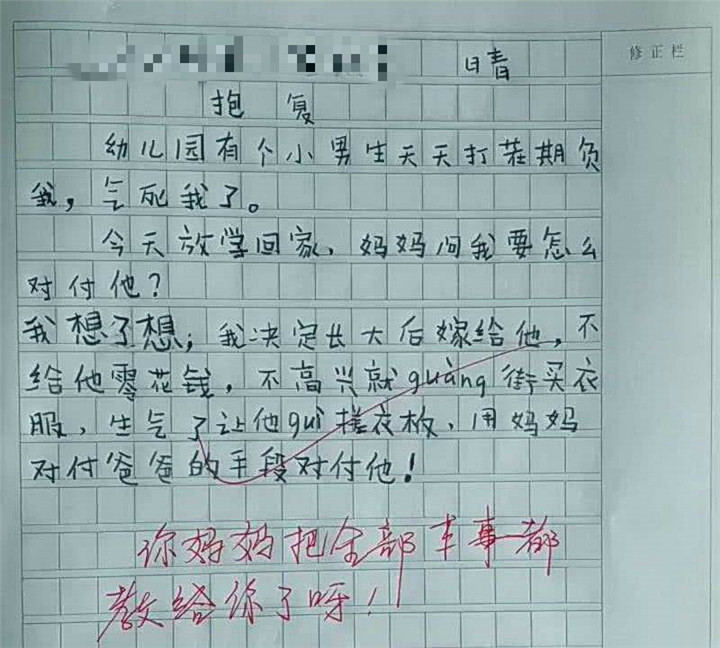 修正栏
晴
抱复
幼儿园有个小男生天天打茬期负
我，气死我了。
今天放学回家，妈妈问我要怎么
对付他？
我想了想，我决定长大后嫁给他，不
给他零花钱，不高兴就guàng街买衣
服，生气了让他guì搓衣板，用妈妈
对付爸爸的手段对付他！
你妈妈把全部本事都
教给你了呀！